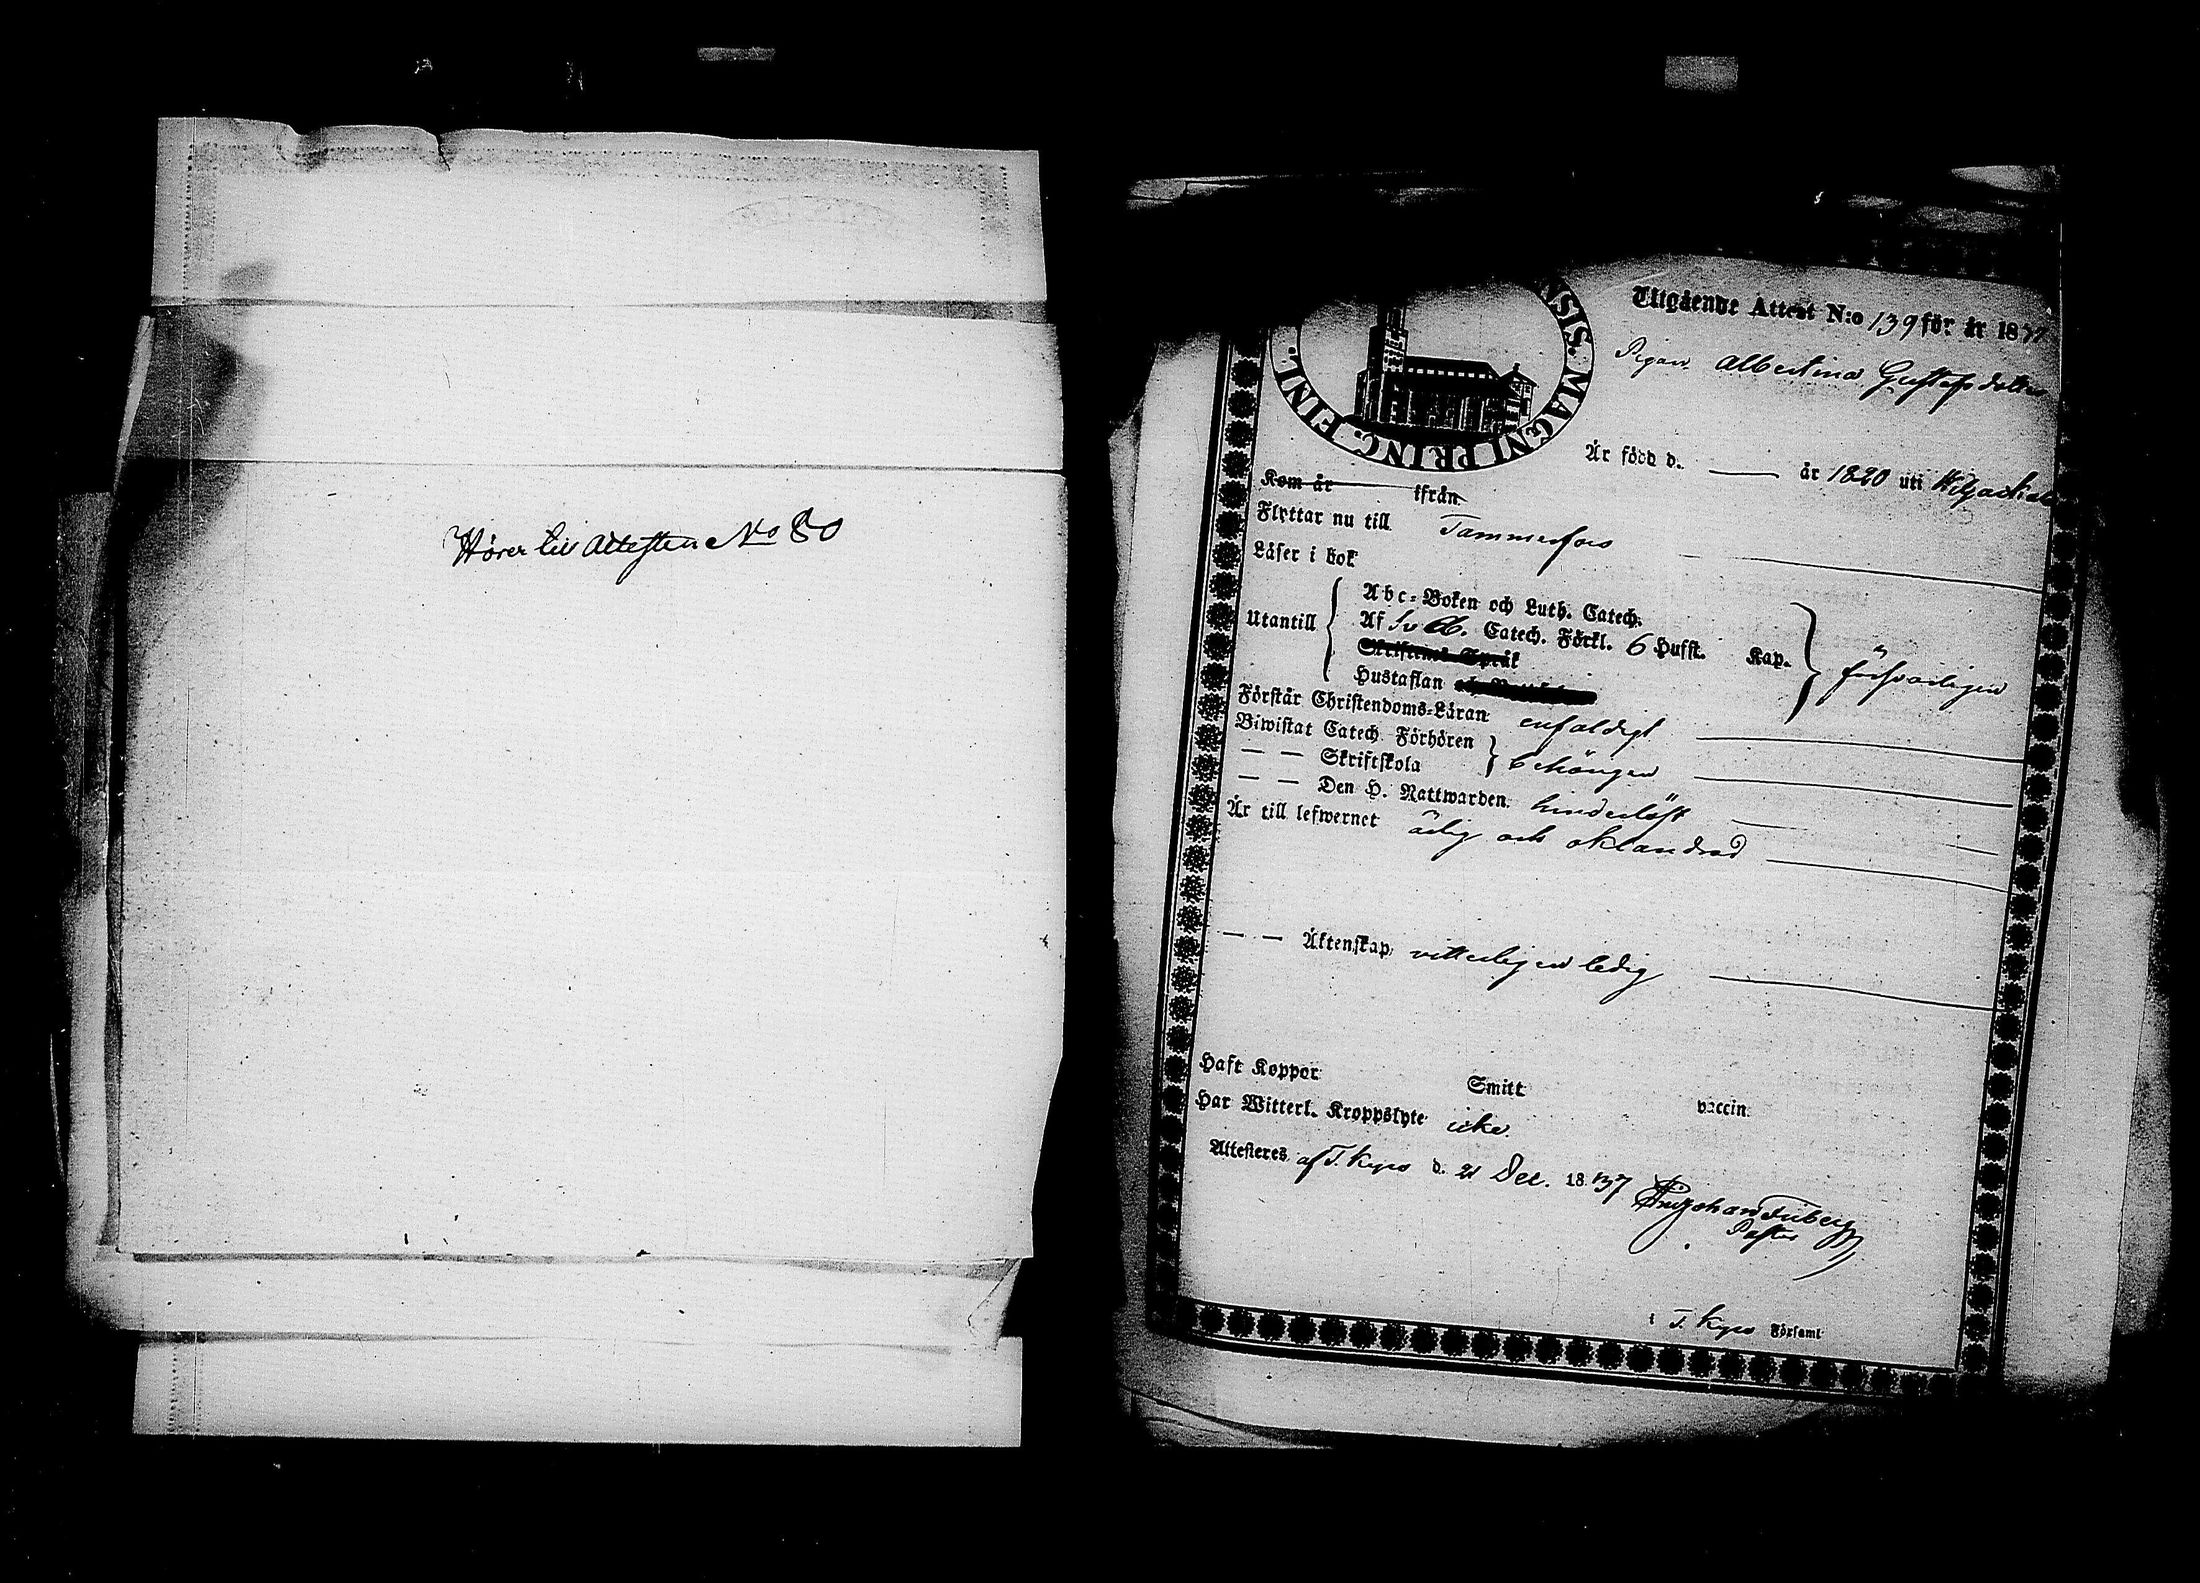 Hörer till Attesten No 80
NSIS. MAGNI PRINC. FINL.
Utgående Attest N:o 139 för år 1837
Pigan Albertina Gustafsdotter
Är född d. — år 1820 uti
Kom år — ifrån
Flyttar nu till Tammerfors
Läser i bok
Utantill
Abc-Boken och Luth. Catech.
Af Sveb. Catech. Förkl. 6 Hufst. Kap.
Skriftens Språk
Hustaflan
försvarligen
Förstår Christendoms-Läran enfaldigt
Biwistat Catech. Förhören
— — Skriftskola behörigen
— — Den H. Nattwarden hinderlöst
Är till lefwernet ärlig och oklandrad
— — Äktenskap vitterligen ledig
Haft Koppor Smitt vaccin
Har Witterl. Kroppslyte icke.
Attesteres af T. Kyro d. 21 Dec. 1837
Pastor
i T. Kyro Församl